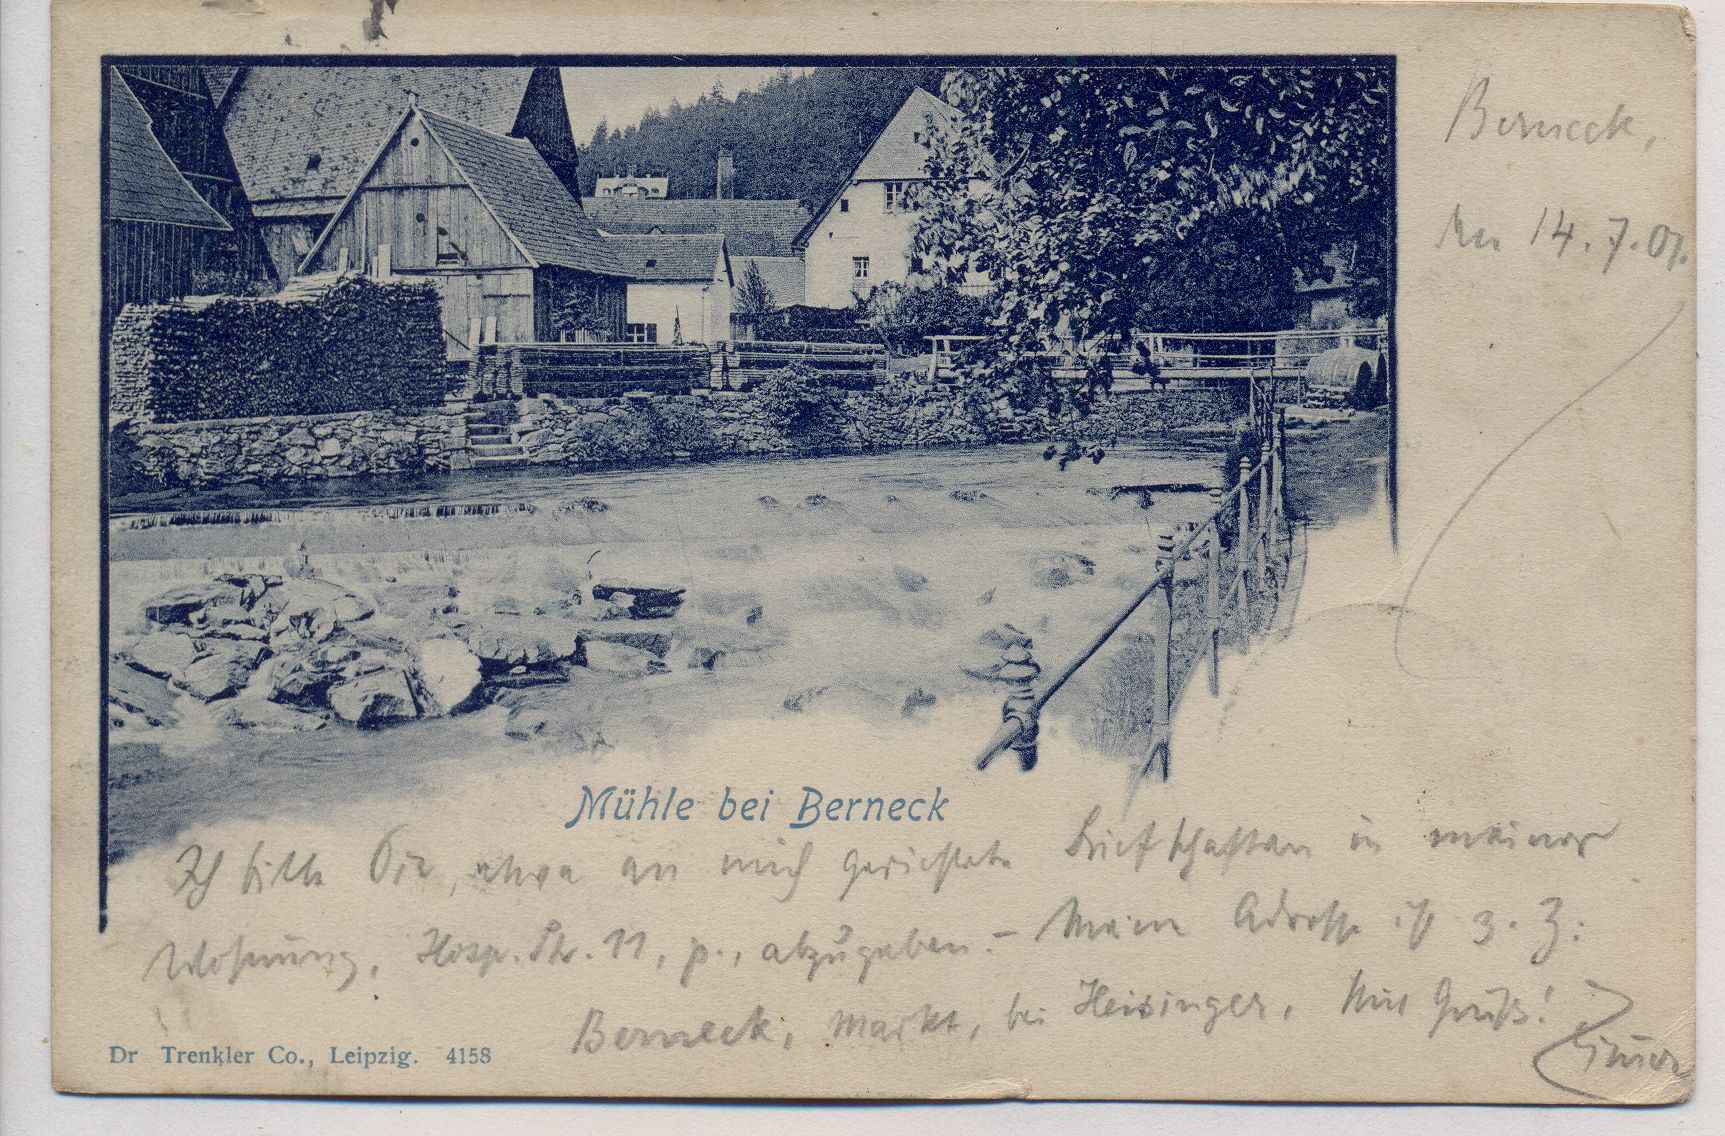 Berneck,
den 14.7.01.
Mühle bei Berneck
Ich bitte Sie, etwa an mich gerichtete Briefschaften in meiner
Wohnung, Hosp. Str. 11, p., abzugeben. – Meine Adresse ist z. Z.:
Berneck, Markt, bei Heisinger. Mit Gruß!
Dr Trenkler Co., Leipzig. 4158